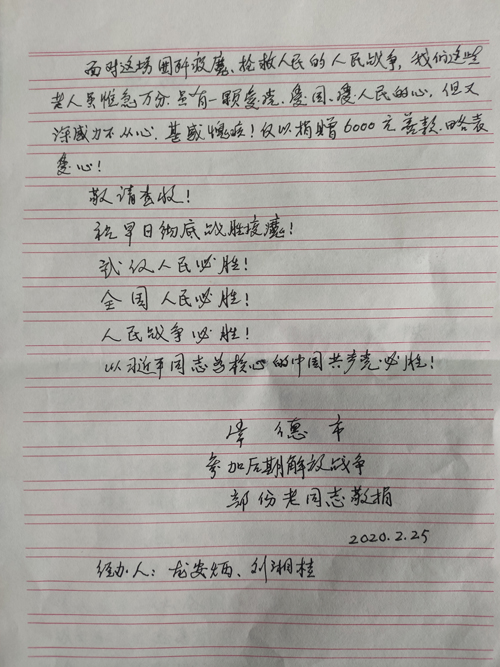 面对这场围歼疫魔、抢救人民的人民战争,我们这些
老人员惟急万分.虽有一颗爱党、爱国、爱人民的心,但又
深感力不从心.甚感愧疚!仅以捐赠6000元善款.略表
爱心!
敬请查收!
祝早日彻底战胜疫魔!
武汉人民必胜!
全国人民必胜!
人民战争必胜!
以习近平同志为核心的中国共产党必胜!
常德市
参加后期解放战争
部份老同志敬捐
2020.2.25
经办人:安炳、刘湘桂